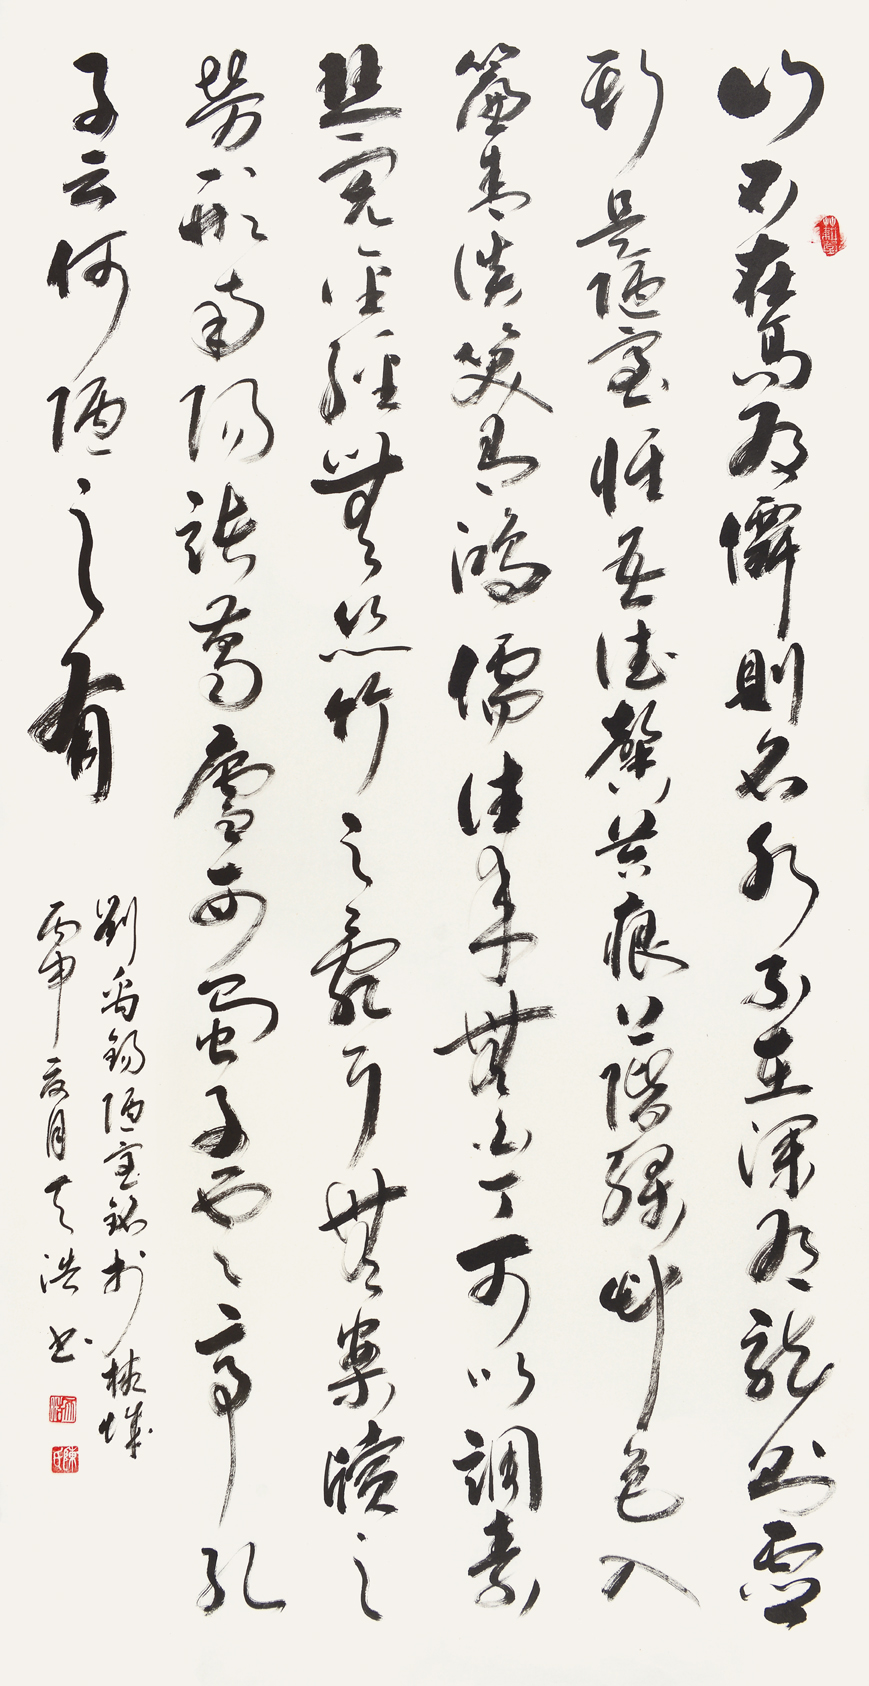 山不在高有僊則名水不在深有龍則靈
斯是陋室惟吾德馨苔痕上階綠草色入
簾青談笑有鴻儒往來無白丁可以調素
琴閱金經無絲竹之亂耳無案牘之
勞形南陽諸葛廬西蜀子雲亭孔
子云何陋之有
劉禹錫陋室銘於
丙申夏月天浩書